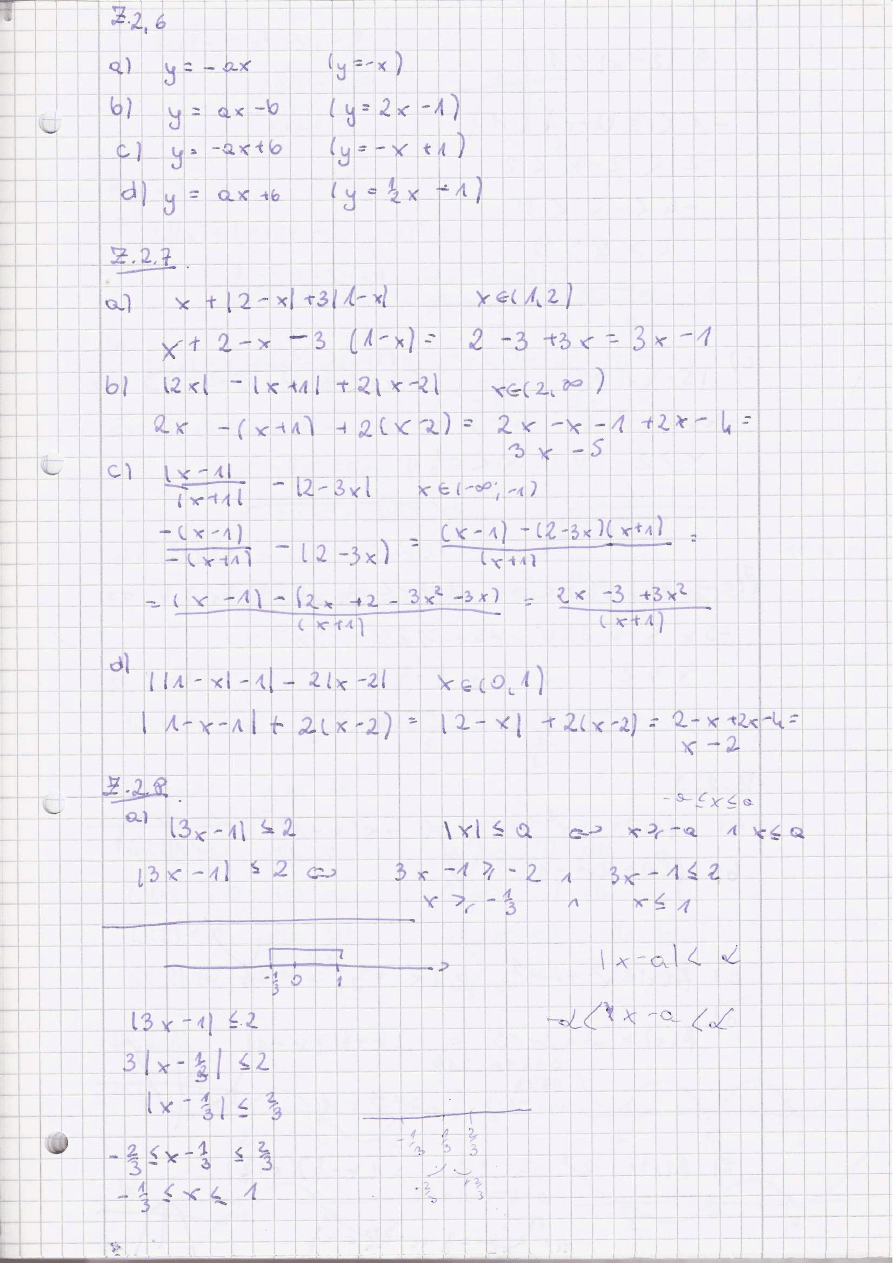 Z.2,6
a) y = -ax (y=-x)
b) y = ax-b (y=2x-1)
c) y= -ax+b (y=-x+1)
d) y = ax+b (y=½x+1)
Z.2.7.
a) x+|2-x|+3|1-x| x∈(1,2)
x+2-x-3(1-x)= 2-3+3x=3x-1
b) |2x|-|x+1|+2|x-2| x∈(2,∞)
2x-(x+1)+2(x-2)= 2x-x-1+2x-4=
3x-5
c) |x-1|/|x+1| - |2-3x| x∈(-∞;-1)
-(x-1)/-(x+1) - (2-3x) = (x-1)-(2-3x)(x+1)/(x+1) =
= (x-1)-(2x+2-3x²-3x)/(x+1) = 2x-3+3x²/(x+1)
d) ||1-x|-1|-2|x-2| x∈(0,1)
|1-x-1|+2(x-2) = |2-x|+2(x-2) = 2-x+2x-4=
x-2
Z.2.8.
-a≤x≤a
a) |3x-1|≤2 |x|≤a ⇔ x≥-a ∧ x≤a
|3x-1|≤2 ⇔ 3x-1≥-2 ∧ 3x-1≤2
x≥-1/3 ∧ x≤1
|x-a|<α
-1/3 0 1
-α< x-a<α
|3x-1|≤2
3|x-1/3|≤2
|x-1/3|≤2/3
-1/3 1/3 2/3
-2/3≤x-1/3≤2/3
-2/3 +2/3
-1/3≤x≤1